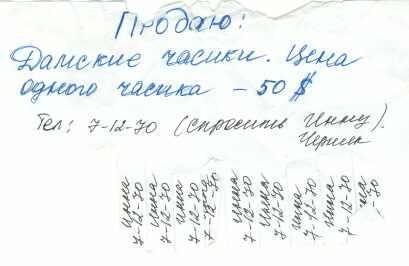 Продаю:
Дамские часики. Цена
одного часика - 50 $
Тел: 7-12-70 (спросить Инну).
Черняк
Инна
7-12-70
Инна
7-12-70
Инна
7-12-70
Инна
7-12-70
Инна
7-12-70
Инна
7-12-70
Инна
7-12-70
Инна
7-12-70
на
-70